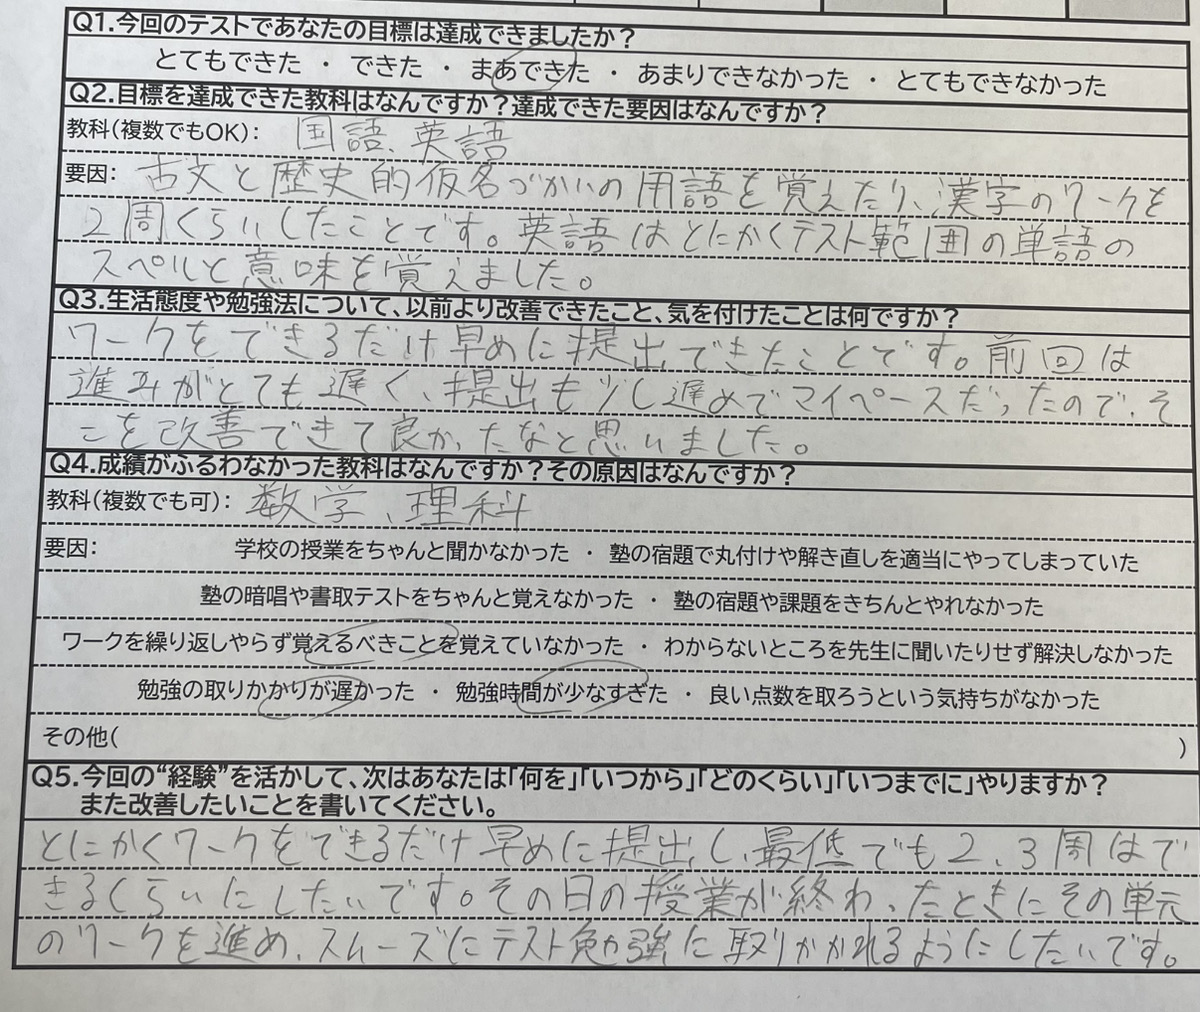 Q1.今回のテストであなたの目標は達成できましたか？
とてもできた ・ できた ・ まあできた ・ あまりできなかった ・ とてもできなかった
Q2.目標を達成できた教科はなんですか？達成できた要因はなんですか？
教科(複数でもOK)： 国語、英語
要因： 古文と歴史的仮名づかいの用語を覚えたり、漢字のワークを
2周くらいしたことです。英語はとにかくテスト範囲の単語の
スペルと意味を覚えました。
Q3.生活態度や勉強法について、以前より改善できたこと、気を付けたことは何ですか？
ワークをできるだけ早めに提出できたことです。前回は
進みがとても遅く、提出も少し遅めでマイペースだったので、そ
こを改善できて良かったなと思いました。
Q4.成績がふるわなかった教科はなんですか？その原因はなんですか？
教科(複数でも可)： 数学、理科
要因： 学校の授業をちゃんと聞かなかった ・ 塾の宿題で丸付けや解き直しを適当にやってしまっていた
塾の暗唱や書取テストをちゃんと覚えなかった ・ 塾の宿題や課題をきちんとやれなかった
ワークを繰り返しやらず覚えるべきことを覚えていなかった ・ わからないところを先生に聞いたりせず解決しなかった
勉強の取りかかりが遅かった ・ 勉強時間が少なすぎた ・ 良い点数を取ろうという気持ちがなかった
その他( )
Q5.今回の“経験”を活かして、次はあなたは「何を」「いつから」「どのくらい」「いつまでに」やりますか？
また改善したいことを書いてください。
とにかくワークをできるだけ早めに提出し、最低でも2、3周はで
きるくらいにしたいです。その日の授業が終わったときにその単元
のワークを進め、スムーズにテスト勉強に取りかかれるようにしたいです。